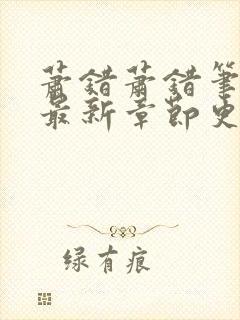 萧错萧错笔
最新章節史
绿有痕